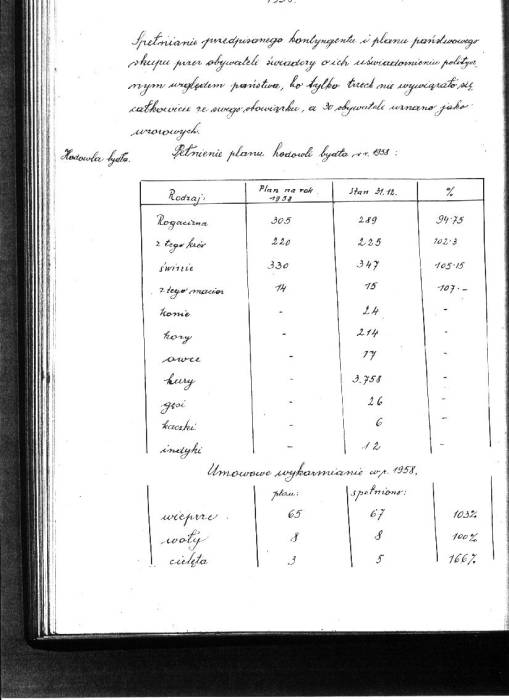 Spełnianie przedpisanego kontyngentu i planu państwowego
skupu przez obywateli świadczy o ich uświadomieniu politycz-
nym względem państwa, bo tylko trzech nie wywiązało się
całkowicie ze swego obowiązku, a 30 obywateli uznano jako
wzorowych.
Hodowla bydła. Pełnienie planu hodowli bydła w r. 1958:
Rodzaj: Plan na rok 1958 Stan 31.12. %
Rogacizna 305 289 94.75
z tego krów 220 225 102.3
świnie 330 347 105.15
z tego macior 14 15 107.-
konie - 24 -
kozy - 214 -
owce - 17 -
kury - 3.758 -
gęsi - 26 -
kaczki - 6 -
indyki - 12 -
Umowowe wykarmianie w r. 1958.
plan: spełniono:
wieprze 65 67 103%
woły 8 8 100%
cielęta 3 5 166%